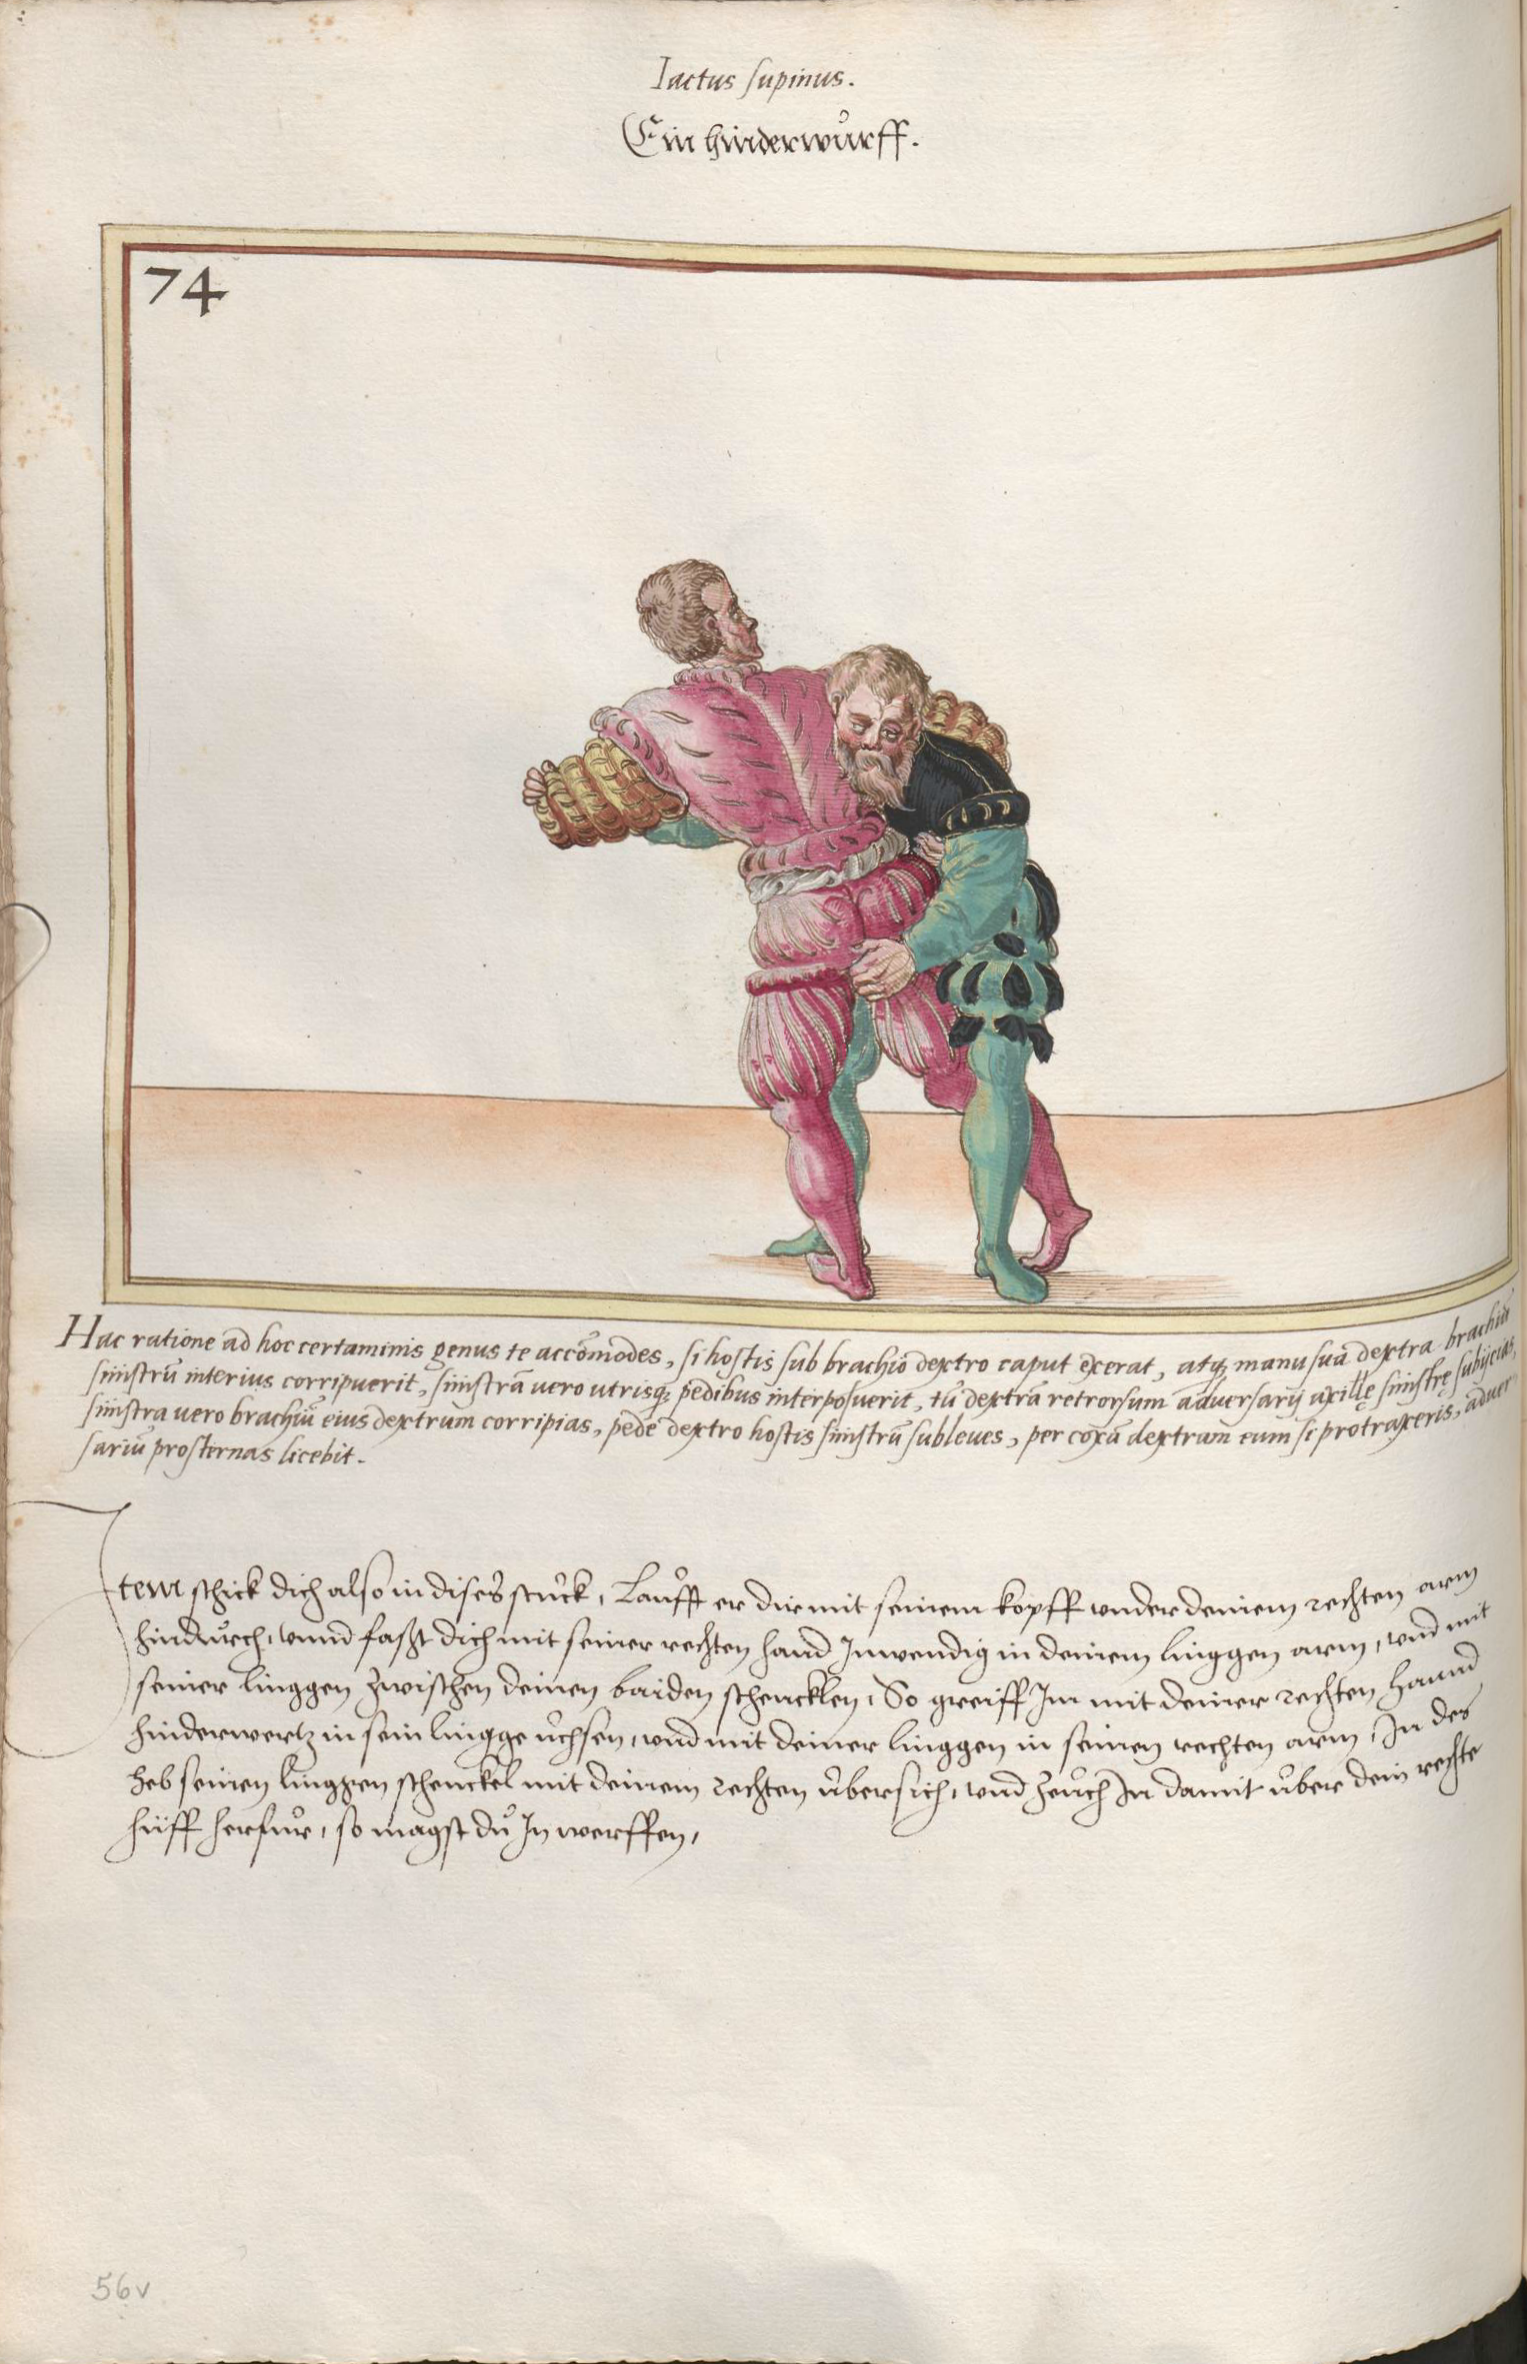 Iactus supinus.
Ein hinderwůrff.
74
Hac ratione ad hoc certaminis genus te accōmodes, si hostis sub brachio dextro caput exerat, atq; manu sua dextra brachiū
sinistrū interius corripuerit, sinistrā uero utrisq; pedibus interposuerit, tū dextrā retrorsum aduersarij axillę sinistrę subijcias,
sinistra uero brachiū eius dextrum corripias, pede dextro hostis sinistrū subleues, per coxā dextram eum si protraxeris, aduer
sariū prosternas licebit.
Item schick dich also in dises stuck, Laufft er dir mit seinem kopff vnder deinem rechten arm
hindurch, vnnd faßt dich mit seiner rechten hand Inwendig in deinem linggen arm, vnd mit
seiner linggen zwischen deinen baiden schencklen, So greiff Im mit deiner rechten hannd
hinderwertz in sein lingge ůchsen, vnd mit deiner linggen in seinen rechten arm, In des
heb seinen linggen schenckel mit deinem rechten übersich, vnd zeuch In damit über dein rechte
hüff herfur, so magst du In werffen,
56v